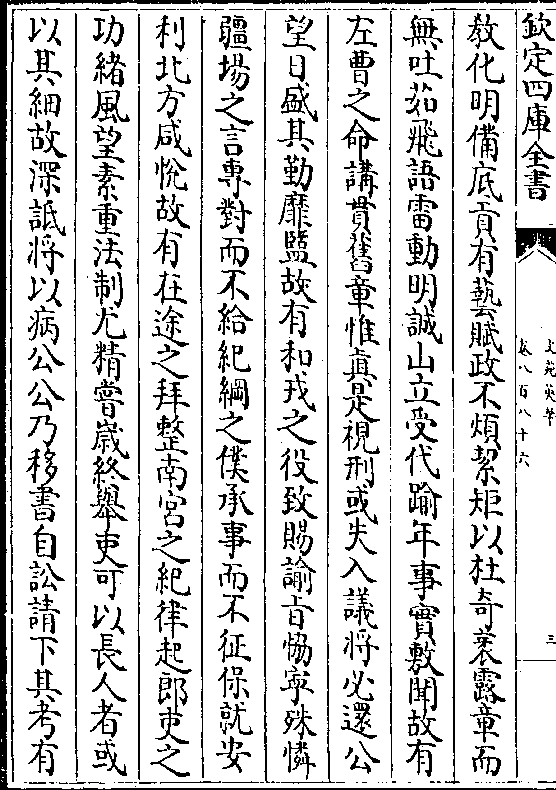 欽定四庫全書
文苑英華
卷八百八十六
三
敎化明備底貢有藝賦政不煩絜矩以杜奇衺露章而
無吐茹飛語雷動明誠山立受代踰年事實敷聞故有
左曹之命講貫舊章惟眞是視刑或失入議將必還公
望日盛其勤靡盬故有和戎之役致賜諭㫖恊寧殊憐
疆場之言專對而不給紀綱之僕承事而不征保就安
利北方咸悅故有在途之拜整南宮之紀律起郎吏之
功緒風望素重法制尤精嘗嵗終舉吏可以長人者或
以其細故深詆將以病公公乃移書自訟請下其考有